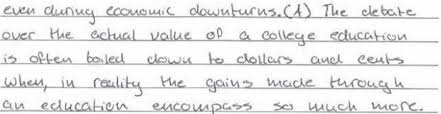 even during economic downturns.(A) The debate
over the actual value of a college education
is often boiled down to dollars and cents
when, in reality the gains made through
an education encompass so much more.